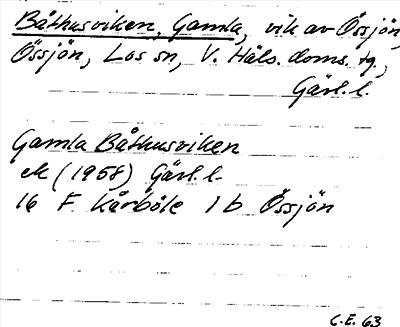 Båthusviken, Gamla, vik av Össjön,
Össjön, Los sn, V. Häls. doms. tg.,
Gävl. l.
Gamla Båthusviken
ek (1958) Gävl. l.
16 F Kårböle 1 b Össjön
C.E. 63